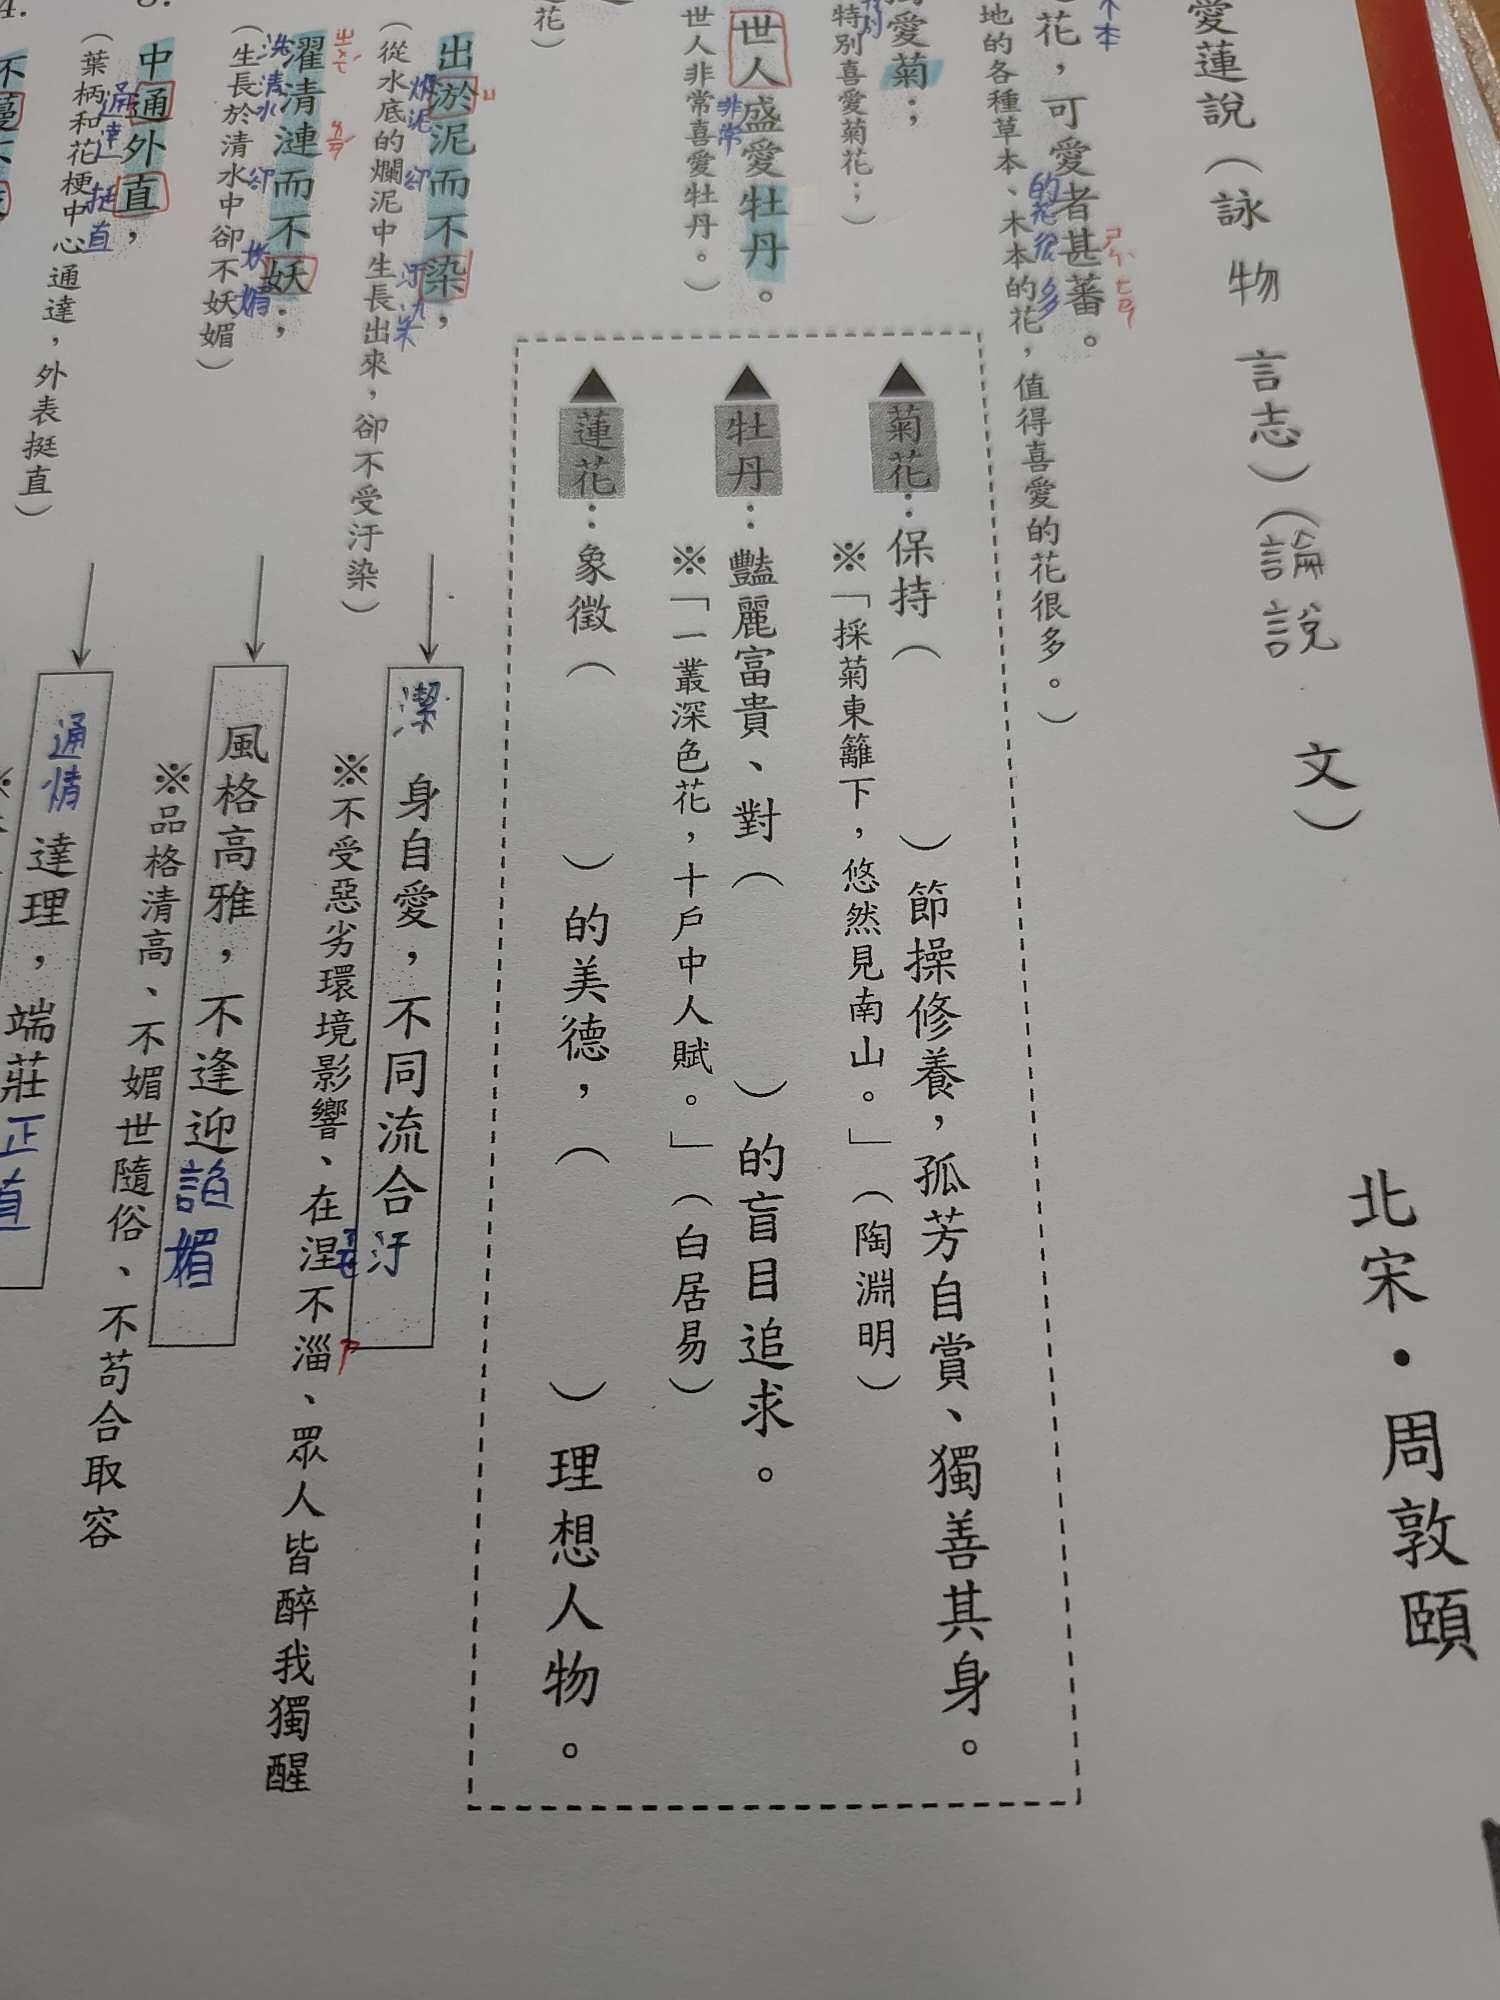 愛蓮說（詠物言志）（論說文）
北宋．周敦頤
花，可愛者甚蕃。
的花很多
地的各種草本、木本的花，值得喜愛的花很多。）
愛菊；
特別
特別喜愛菊花；）
世人盛愛牡丹。
非常
世人非常喜愛牡丹。）
花）
▲菊花：保持（　）節操修養，孤芳自賞、獨善其身。
※「採菊東籬下，悠然見南山。」（陶淵明）
▲牡丹：豔麗富貴、對（　）的盲目追求。
※「一叢深色花，十戶中人賦。」（白居易）
▲蓮花：象徵（　）的美德，（　）理想人物。
出淤泥而不染，
ㄩ
爛泥 卻 汙染
（從水底的爛泥中生長出來，卻不受汙染）
潔身自愛，不同流合汙
※不受惡劣環境影響、在涅不淄、眾人皆醉我獨醒
ㄗ
濯清漣而不妖；
洗清水 卻 妖媚
（生長於清水中卻不妖媚）
風格高雅，不逢迎諂媚
※品格清高、不媚世隨俗、不苟合取容
中通外直，
通達 挺直
（葉柄和花梗中心通達，外表挺直）
通情達理，端莊正直
不蔓不